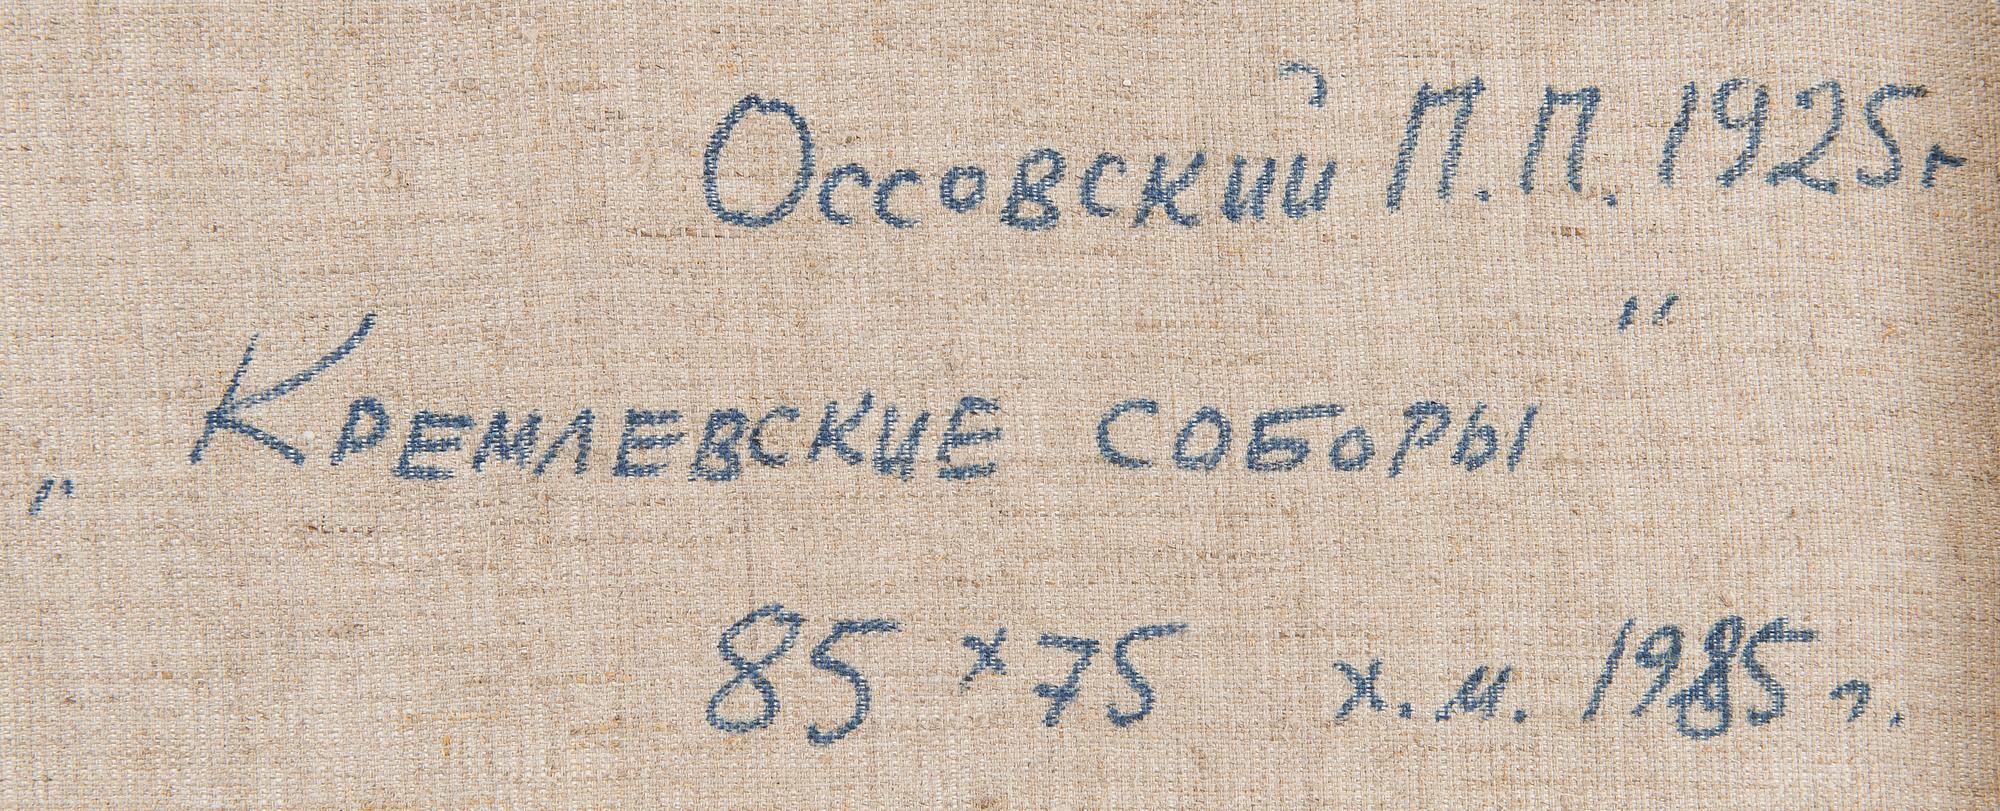 Оссовский П.П. 1925г
„Кремлевские соборы"
85 x 75 х.м. 1985 г.